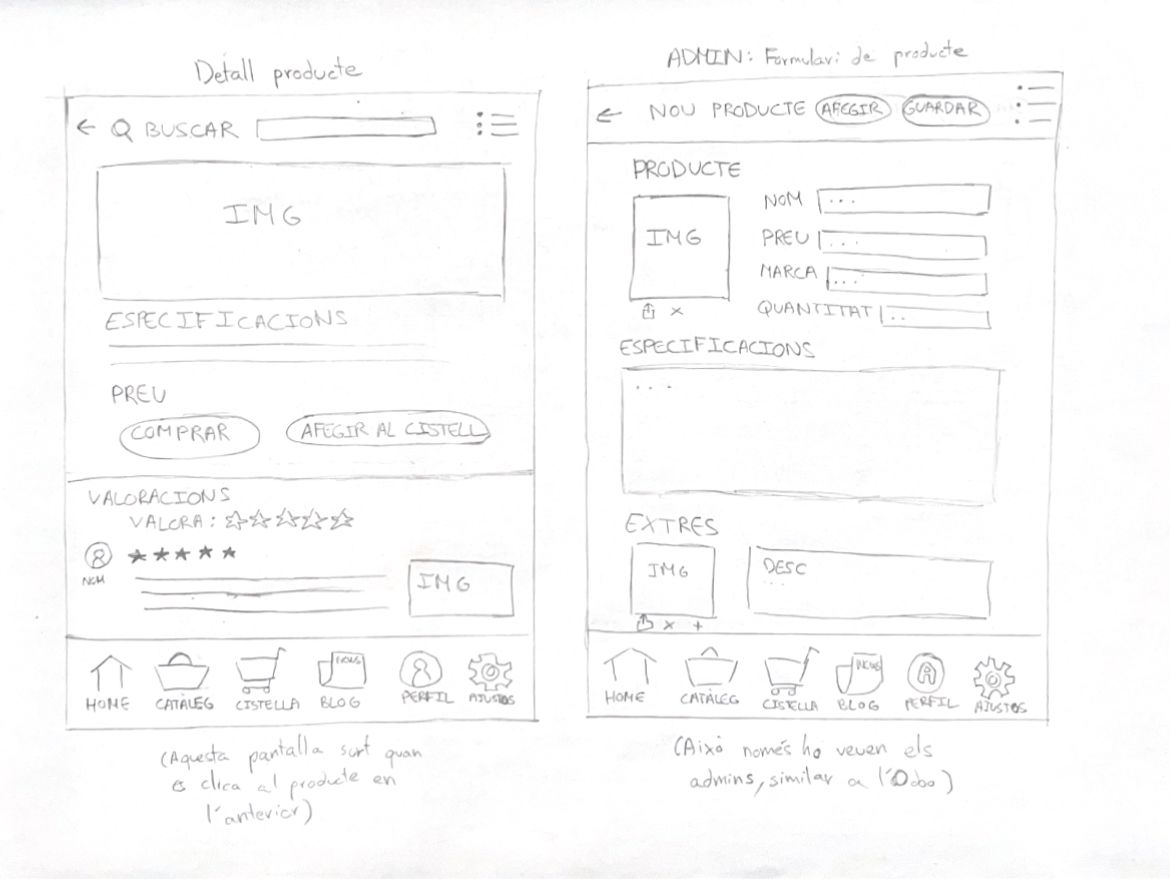 Detall producte
BUSCAR
IMG
ESPECIFICACIONS
PREU
COMPRAR
AFEGIR AL CISTELL
VALORACIONS
VALORA:
NOM
IMG
HOME
CATÀLEG
CISTELLA
BLOG
NEWS
PERFIL
AJUSTOS
(Aquesta pantalla surt quan
es clica al producte en
l'anterior)
ADMIN: Formulari de producte
NOU PRODUCTE
AFEGIR
GUARDAR
PRODUCTE
IMG
NOM ...
PREU ...
MARCA ...
QUANTITAT ..
ESPECIFICACIONS
...
EXTRES
IMG
DESC
...
HOME
CATÀLEG
CISTELLA
NEWS
BLOG
A
PERFIL
AJUSTOS
(Això només ho veuen els
admins, similar a l'Odoo)